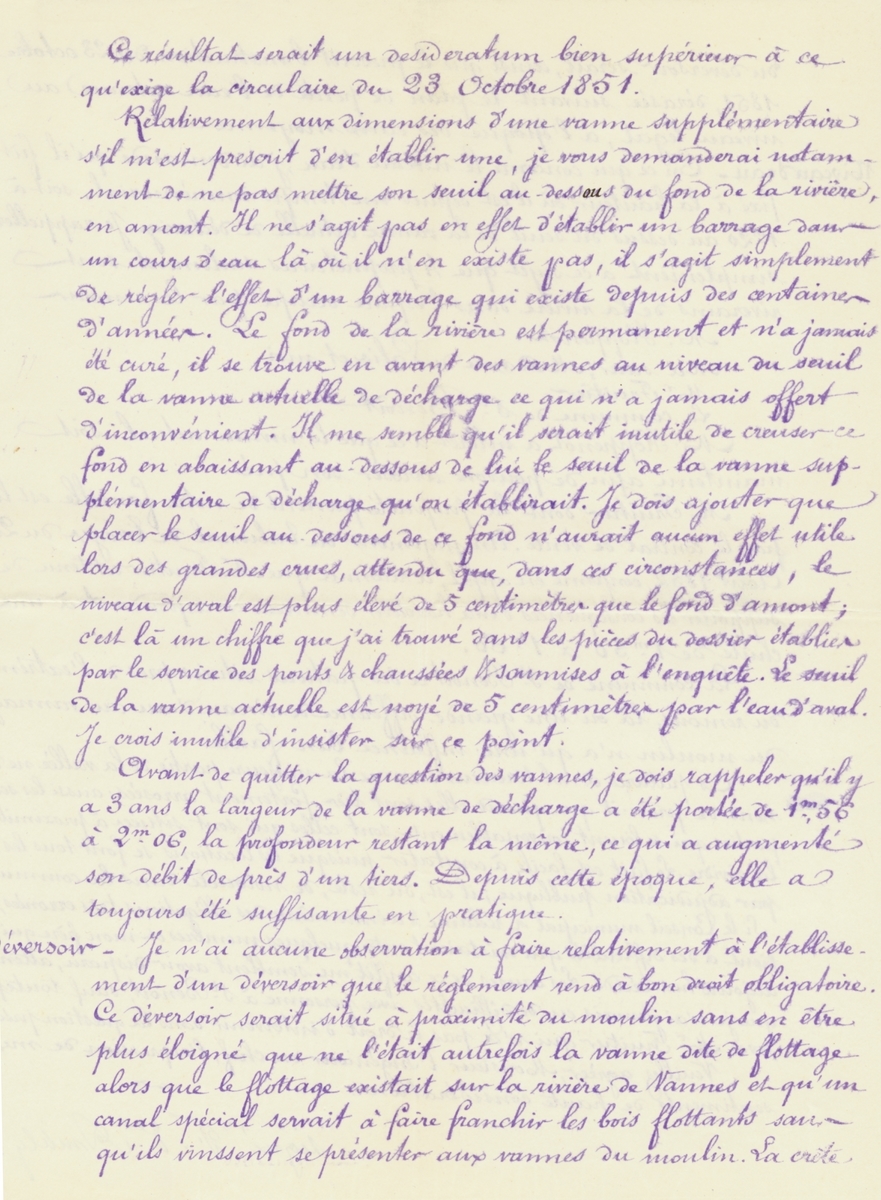 Ce résultat serait un desideratum bien supérieur à ce
qu'exige la circulaire du 23 Octobre 1851.
Relativement aux dimensions d'une vanne supplémentaire
s'il m'est prescrit d'en établir une, je vous demanderai notam-
ment de ne pas mettre son seuil au dessous du fond de la rivière,
en amont. Il ne s'agit pas en effet d'établir un barrage dans
un cours d'eau là où il n'en existe pas, il s'agit simplement
de régler l'effet d'un barrage qui existe depuis des centaines
d'années. Le fond de la rivière est permanent et n'a jamais
été curé, il se trouve en avant des vannes au niveau du seuil
de la vanne actuelle de décharge ce qui n'a jamais offert
d'inconvénient. Il me semble qu'il serait inutile de creuser ce
fond en abaissant au-dessous de lui le seuil de la vanne sup-
plémentaire de décharge qu'on établirait. Je dois ajouter que
placer le seuil au dessous de ce fond n'aurait aucun effet utile
lors des grandes crues, attendu que, dans ces circonstances, le
niveau d'aval est plus élevé de 5 centimètres que le fond d'amont;
c'est là un chiffre que j'ai trouvé dans les pièces du dossier établies
par le service des ponts & chaussées & soumises à l'enquête. Le seuil
de la vanne actuelle est noyé de 5 centimètres par l'eau d'aval.
Je crois inutile d'insister sur ce point.
Avant de quitter la question des vannes, je dois rappeler qu'il y
a 3 ans la largeur de la vanne de décharge a été portée de 1m,56
à 2m 06, la profondeur restant la même, ce qui a augmenté
son débit de près d'un tiers. Depuis cette époque, elle a
toujours été suffisante en pratique.
éversoir - Je n'ai aucune observation à faire relativement à l'établisse-
ment d'un déversoir que le réglement rend à bon droit obligatoire.
Ce déversoir serait situé à proximité du moulin sans en être
plus éloigné que ne l'était autrefois la vanne dite de flottage
alors que le flottage existait sur la rivière de Vannes et qu'un
canal spécial servait à faire franchir les bois flottants sans
qu'ils vinssent se présenter aux vannes du moulin. La crête